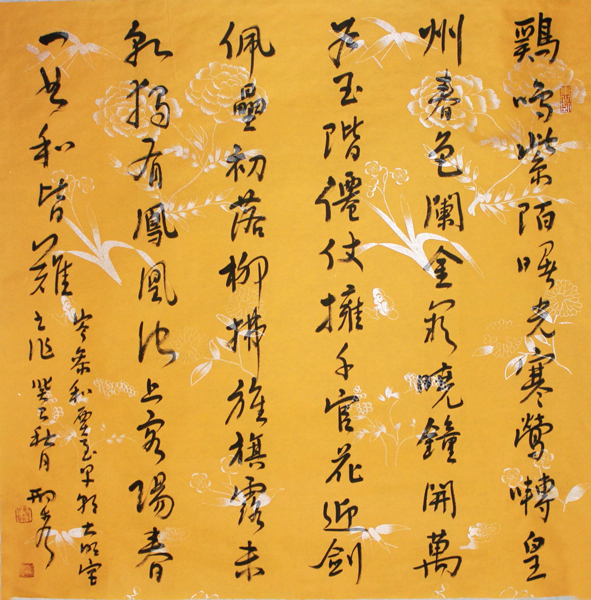 鷄鳴紫陌曙光寒鶯囀皇
州春色闌金闕曉鐘開萬
戶玉階僊仗擁千官花迎劍
佩曐初落柳拂旌旗露未
乾獨有鳳凰池上客陽春
一曲和皆難
岑參和賈至早朝大明宮
之作癸巳秋月邢